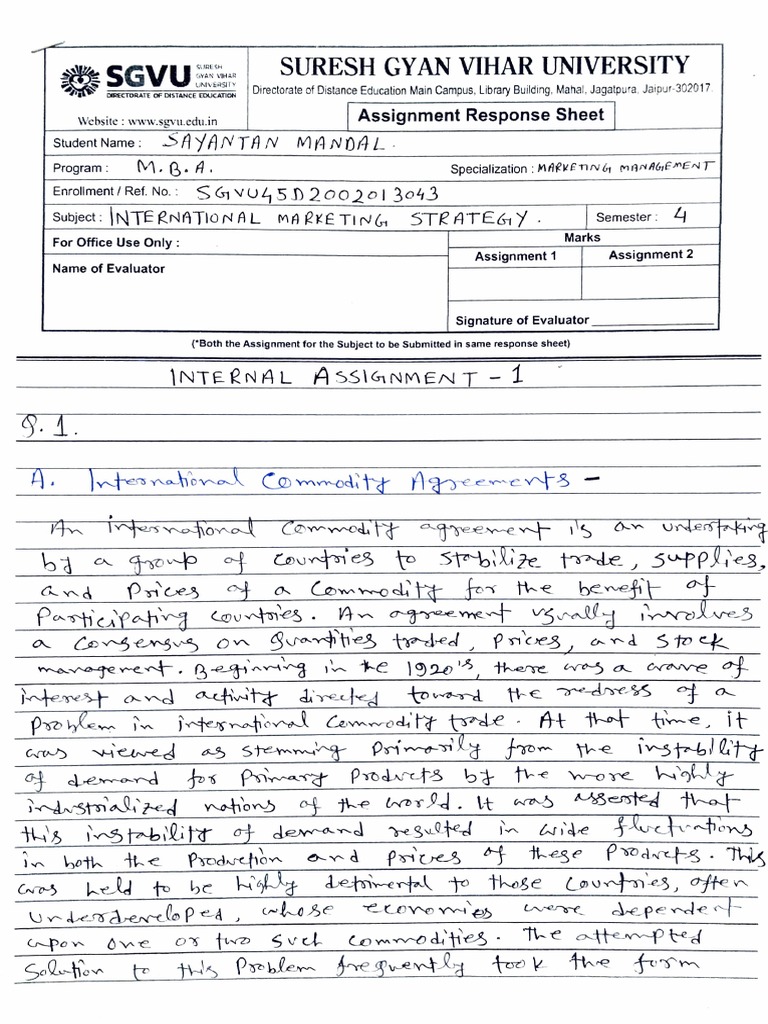 SGVU SURESH GYAN VIHAR UNIVERSITY
DIRECTORATE OF DISTANCE EDUCATION
Website : www.sgvu.edu.in
SURESH GYAN VIHAR UNIVERSITY
Directorate of Distance Education Main Campus, Library Building, Mahal, Jagatpura, Jaipur-302017
Assignment Response Sheet
Student Name : SAYANTAN MANDAL.
Program : M.B.A. Specialization : MARKETING MANAGEMENT
Enrollment / Ref. No. : SGVU45D2002013043
Subject : INTERNATIONAL MARKETING STRATEGY. Semester : 4
For Office Use Only : Marks
Name of Evaluator Assignment 1 Assignment 2
Signature of Evaluator
(*Both the Assignment for the Subject to be Submitted in same response sheet)
INTERNAL ASSIGNMENT - 1
Q.1.
A. International Commodity Agreements -
An international Commodity agreement is an undertaking
by a group of Countries to stabilize trade, supplies,
and Prices of a Commodity for the benefit of
Participating Countries. An agreement usually involves
a Consensus on quantities traded, Prices, and stock
management. Beginning in the 1920's, there was a wave of
interest and activity directed toward the redress of a
Problem in international Commodity trade. At that time, it
was viewed as stemming Primarily from the instability
of demand for Primary Products by the more highly
industrialized nations of the world. It was asserted that
this instability of demand resulted in wide fluctuations
in both the Production and Prices of these Products. This
was held to be highly detrimental to those Countries, often
underdeveloped, whose economies were dependent
upon one or two such commodities. The attempted
Solution to this Problem frequently took the form